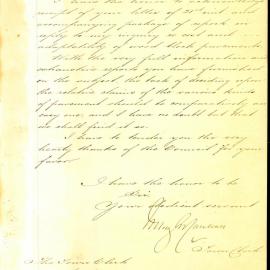 I have the honor to acknowledge
receipt of your letter of and
accompanying package of reports in
reply to my inquiry as to cost and
adaptability of wood block pavements.
With the very full information and
exhaustive reports you have furnished
on the subject the task of deciding upon
the relative claims of the various kinds
of pavement should be comparatively an
easy one, and I have no doubt but that
we shall find it so.
I have to tender you the very
hearty thanks of the Council for your
favor.
I have the honor to be
Sir
Your Obedient servant
Town Clerk
The Town Clerk